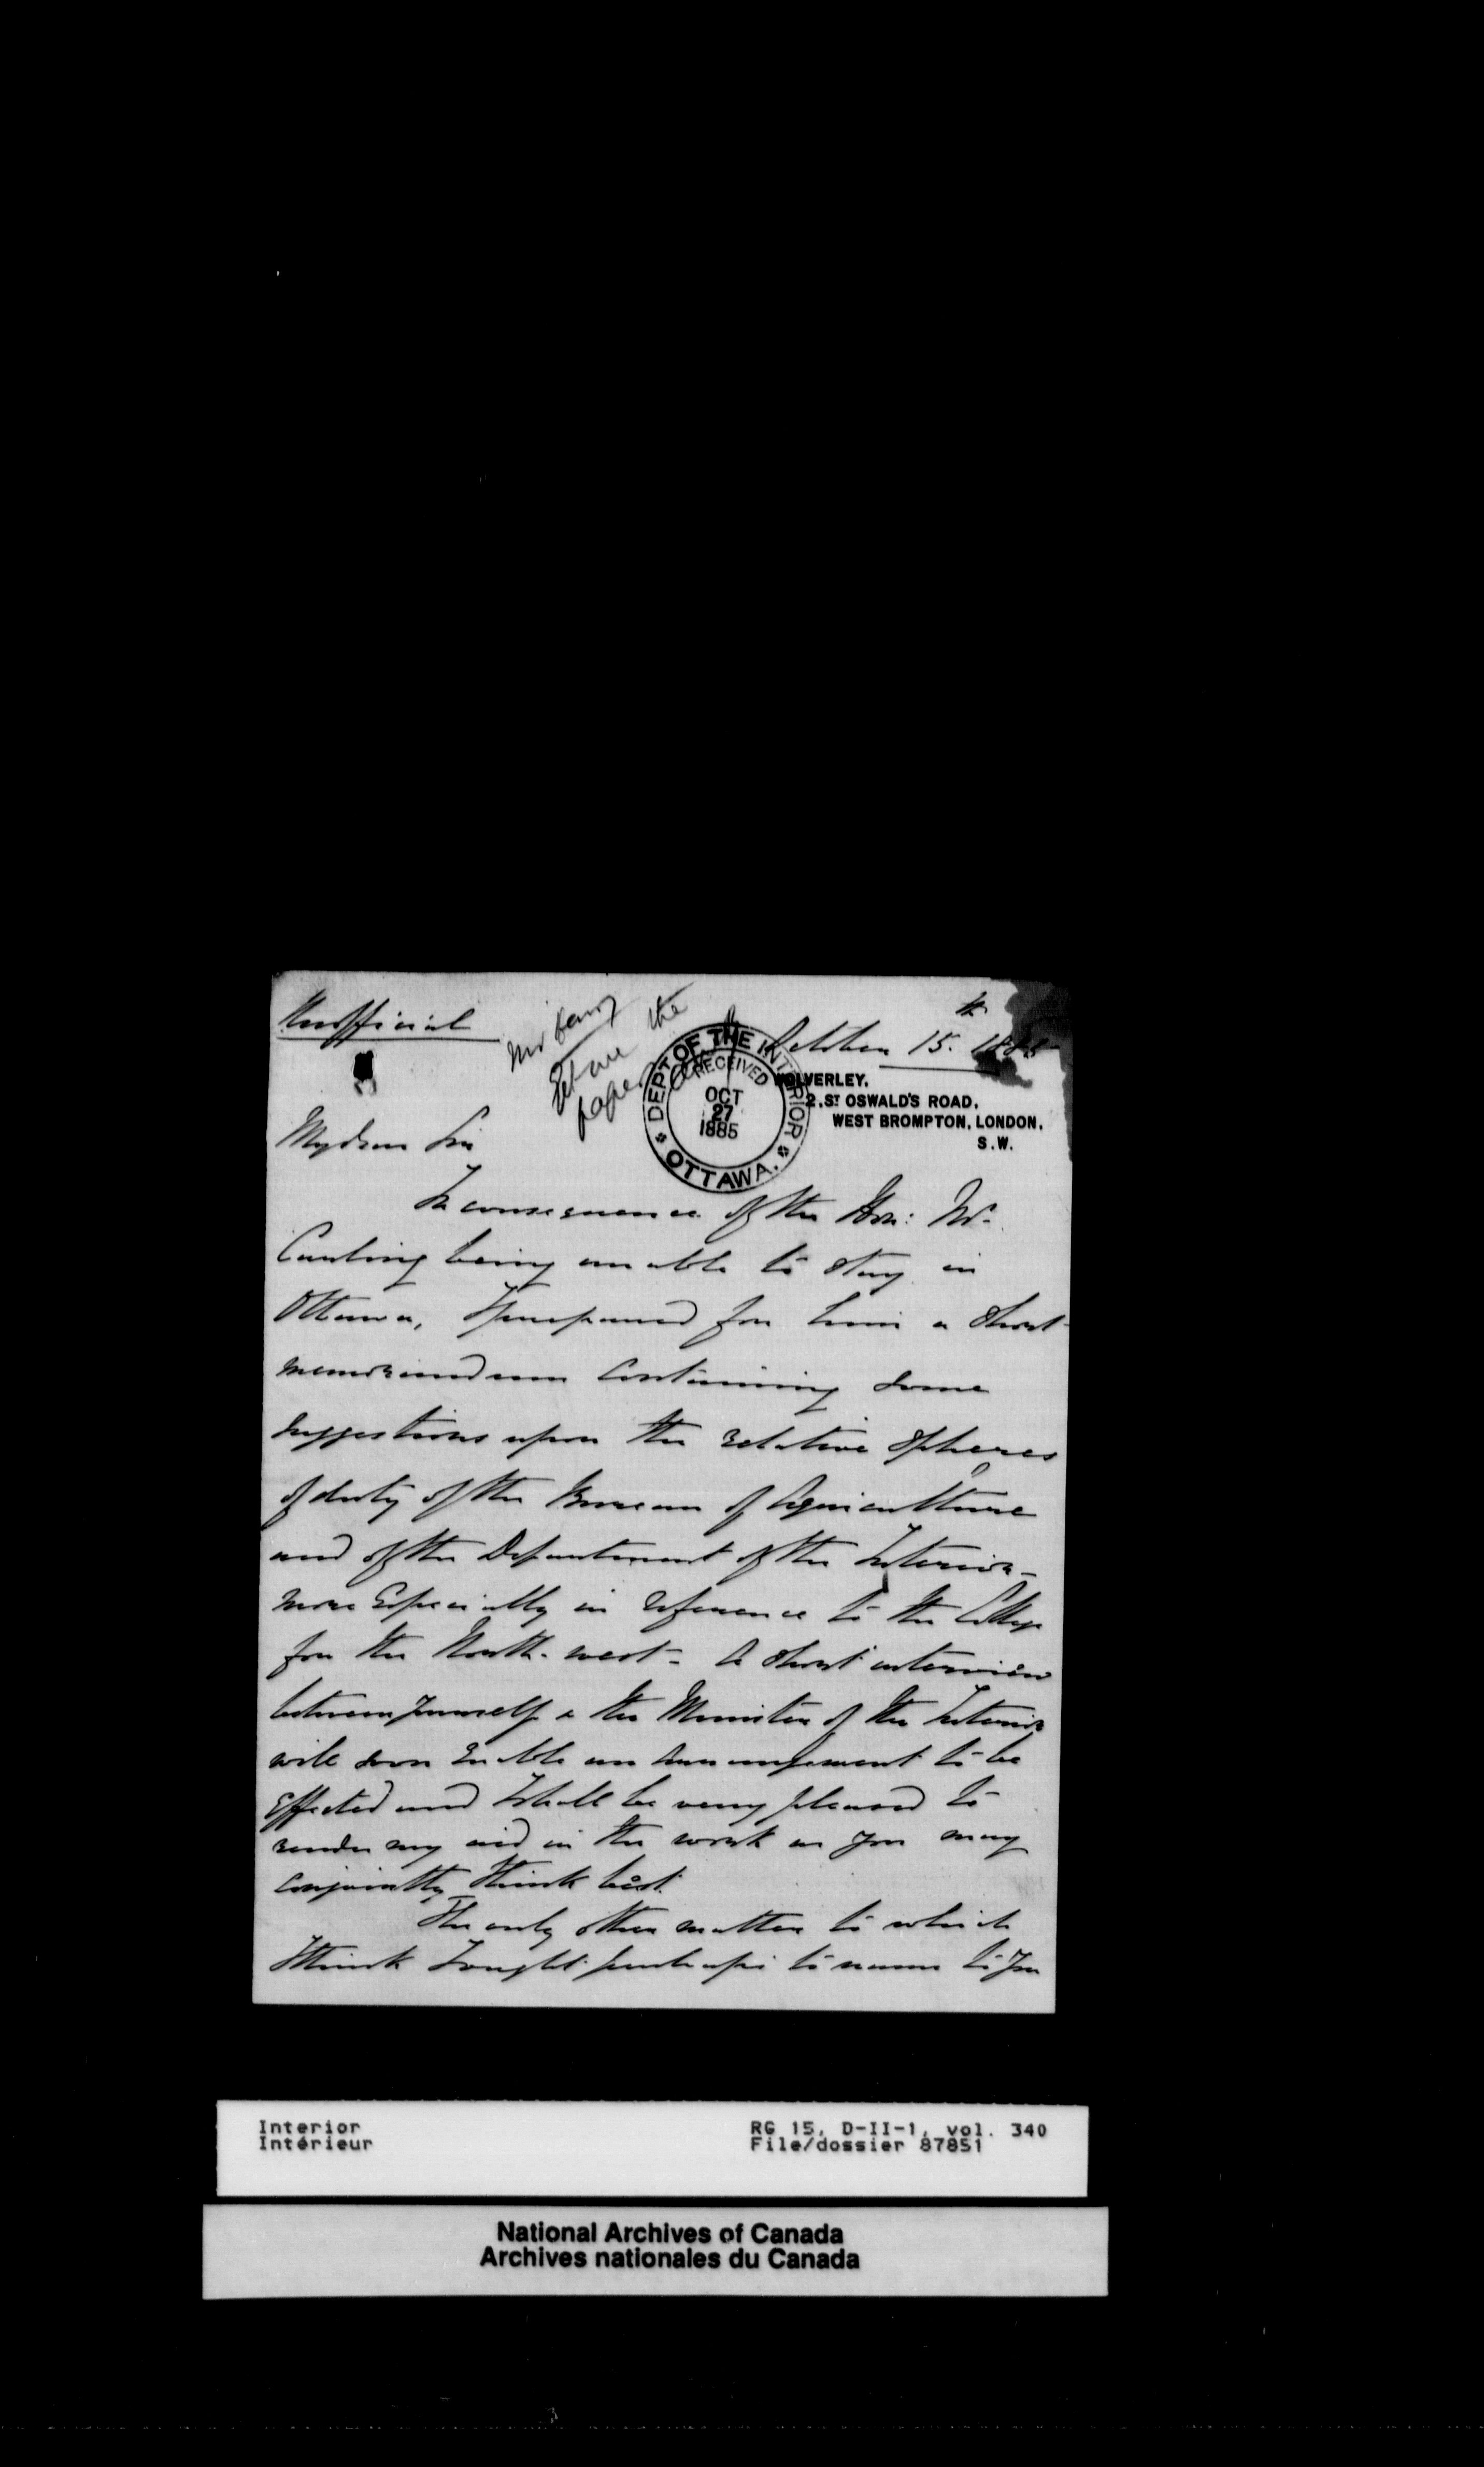 Unofficial
October 15th 1885
Mr
Let me
the
paper
DEPT OF THE INTERIOR
RECEIVED
OCT
27
1885
OTTAWA.
WOLVERLEY,
2, ST OSWALD'S ROAD,
WEST BROMPTON, LONDON,
S.W.
My dear Sir
In consequence of the Hon: Mr.
Carling being unable to stay in
Ottawa, I prepared for him a short
memorandum containing some
suggestions upon the relative spheres
of duty of the Bureau of Agriculture
and of the Department of the Interior -
more especially in reference to the College
for the North-west - A short interview
between yourself & the Minister of the Interior
will soon enable an arrangement to be
effected and I shall be very pleased to
render my aid in the work as you may
conjointly think best.
The only other matter to which
I think I ought perhaps to name to you
Interior
Intérieur
RG 15, D-II-1, vol. 340
File/dossier 87851
National Archives of Canada
Archives nationales du Canada